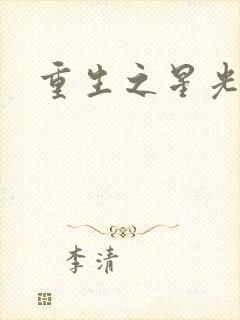 重生之星光
李清